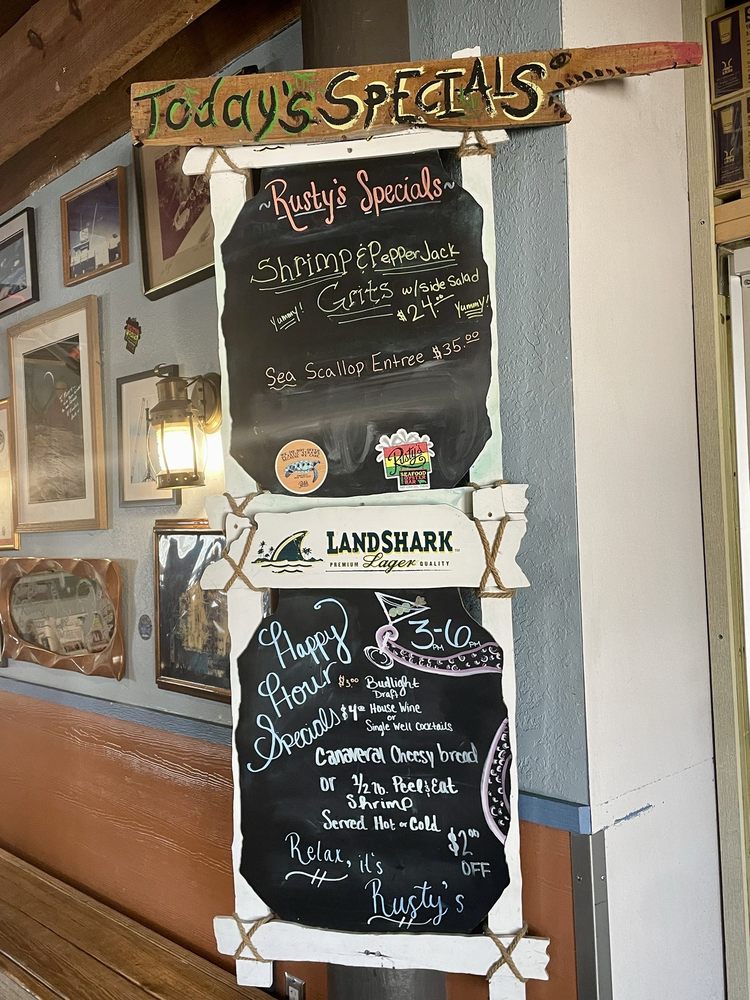 Today's SPECIALS
~Rusty's Specials~
Shrimp & Pepper Jack
Grits w/ Side Salad
Yummy! $24.00 Yummy!
Sea Scallop Entree $35.00
Rusty's
SEAFOOD
& OYSTER
BAR
LANDSHARK
PREMIUM Lager QUALITY
Happy
Hour
Specials
3PM-6PM
$3.00 Budlight
Draft
$4.00 House Wine
or
Single Well Cocktails
Canaveral Cheesy bread
or 1/2 lb. Peel & Eat
Shrimp
Served Hot or Cold
$2.00
OFF
Relax, it's
Rusty's